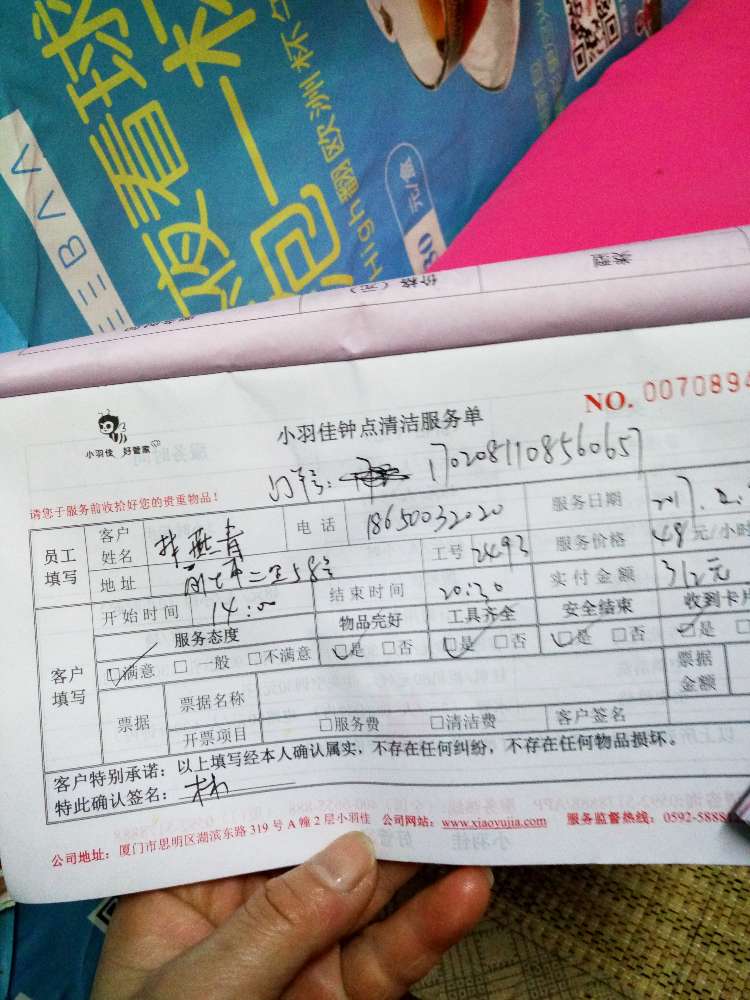 夜看球
泡一杯
High翻欧洲杯
30 元/盒
类型
价格(元)
NO. 0070894
小羽佳 好管家
小羽佳钟点清洁服务单
1702081108560657
请您于服务前收拾好您的贵重物品!
员工填写 客户姓名 燕青 电话 18650032020 服务日期 2017.2.
地址 二里58号 工号 2493 服务价格 48 元/小时
开始时间 14:00 结束时间 20:30 实付金额 312元
客户填写 服务态度 物品完好 工具齐全 安全结束 收到卡片
☑满意 □一般 □不满意 ☑是 □否 ☑是 □否 ☑是 □否 ☑是
票据 票据名称 票据金额
开票项目 □服务费 □清洁费 客户签名
客户特别承诺:以上填写经本人确认属实,不存在任何纠纷,不存在任何物品损坏。
特此确认签名:林
公司地址:厦门市思明区湖滨东路 319 号 A 幢 2 层小羽佳 公司网站:www.xiaoyujia.com 服务监督热线:0592-58881